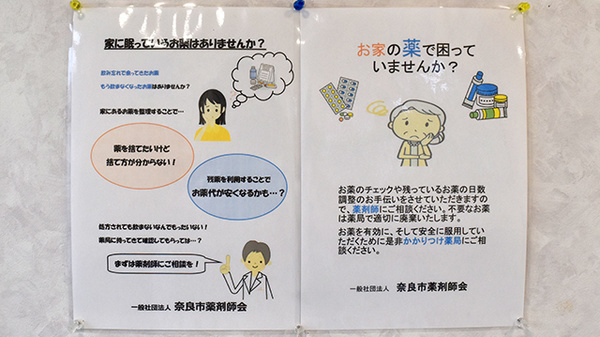 家に眠っているお薬はありませんか？
飲み忘れで余ってきたお薬
もう飲まなくなったお薬はありませんか？
家にあるお薬を整理することで…
薬を捨てたいけど
捨て方が分からない！
残薬を利用することで
お薬代が安くなるかも…？
処方されても飲まないなんてもったいない！
薬局に持ってきて確認してもらっては…？
まずは薬剤師にご相談を！
一般社団法人 奈良市薬剤師会
お家の薬で困って
いませんか？
お薬のチェックや残っているお薬の日数
調整のお手伝いをさせていただきますの
で、薬剤師にご相談ください。不要なお薬
は薬局で適切に廃棄いたします。
お薬を有効に、そして安全に服用してい
ただくために是非かかりつけ薬局にご相
談ください。
一般社団法人 奈良市薬剤師会